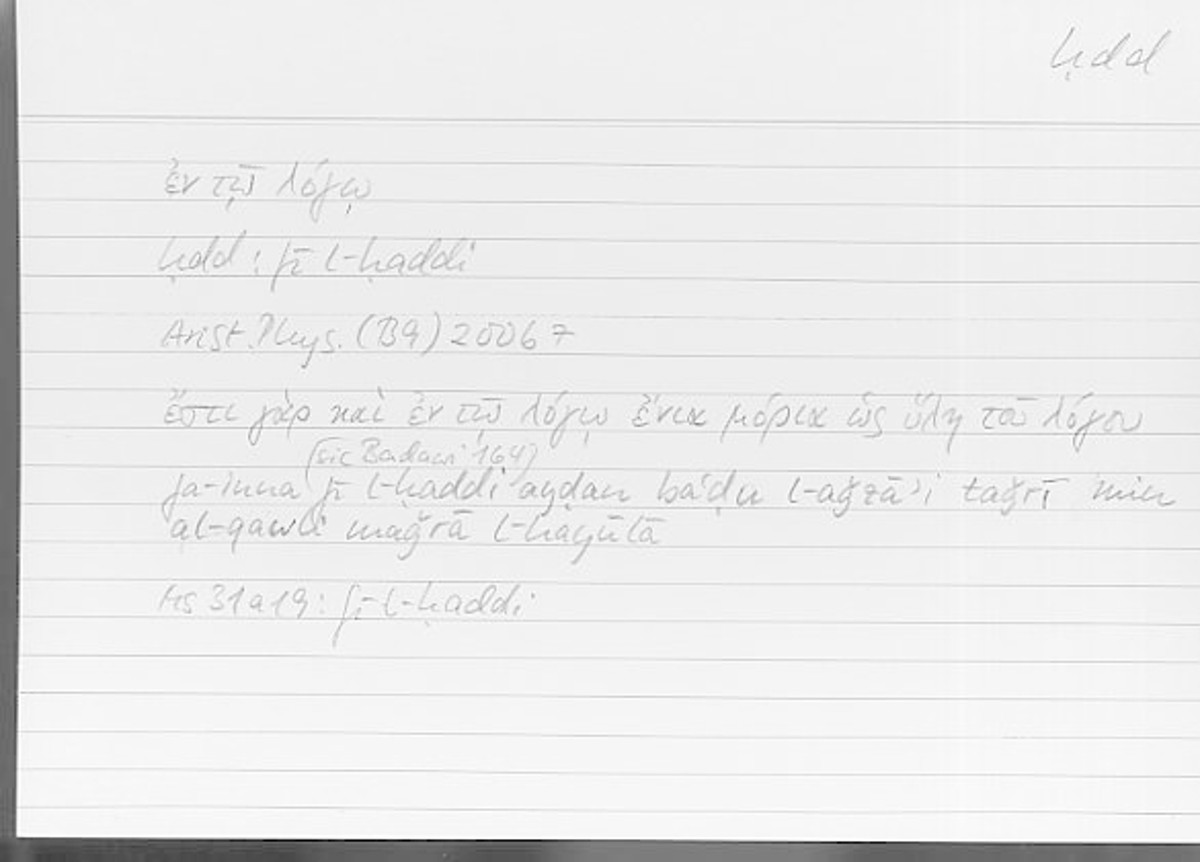 ḥdd
ἐν τῷ λόγῳ
ḥdd: fī l-ḥaddi
Arist. Phys. (B9) 200b7
ἔστι γὰρ καὶ ἐν τῷ λόγῳ ἔνια μόρια ὡς ὕλη τοῦ λόγου
(sic Badawi 164)
fa-inna fī l-ḥaddi ayḍan baʿḍu l-aǧzāʾi taǧrī min
al-qawli maǧrā l-hayūlā
Hs 31a19: fī l-ḥaddi